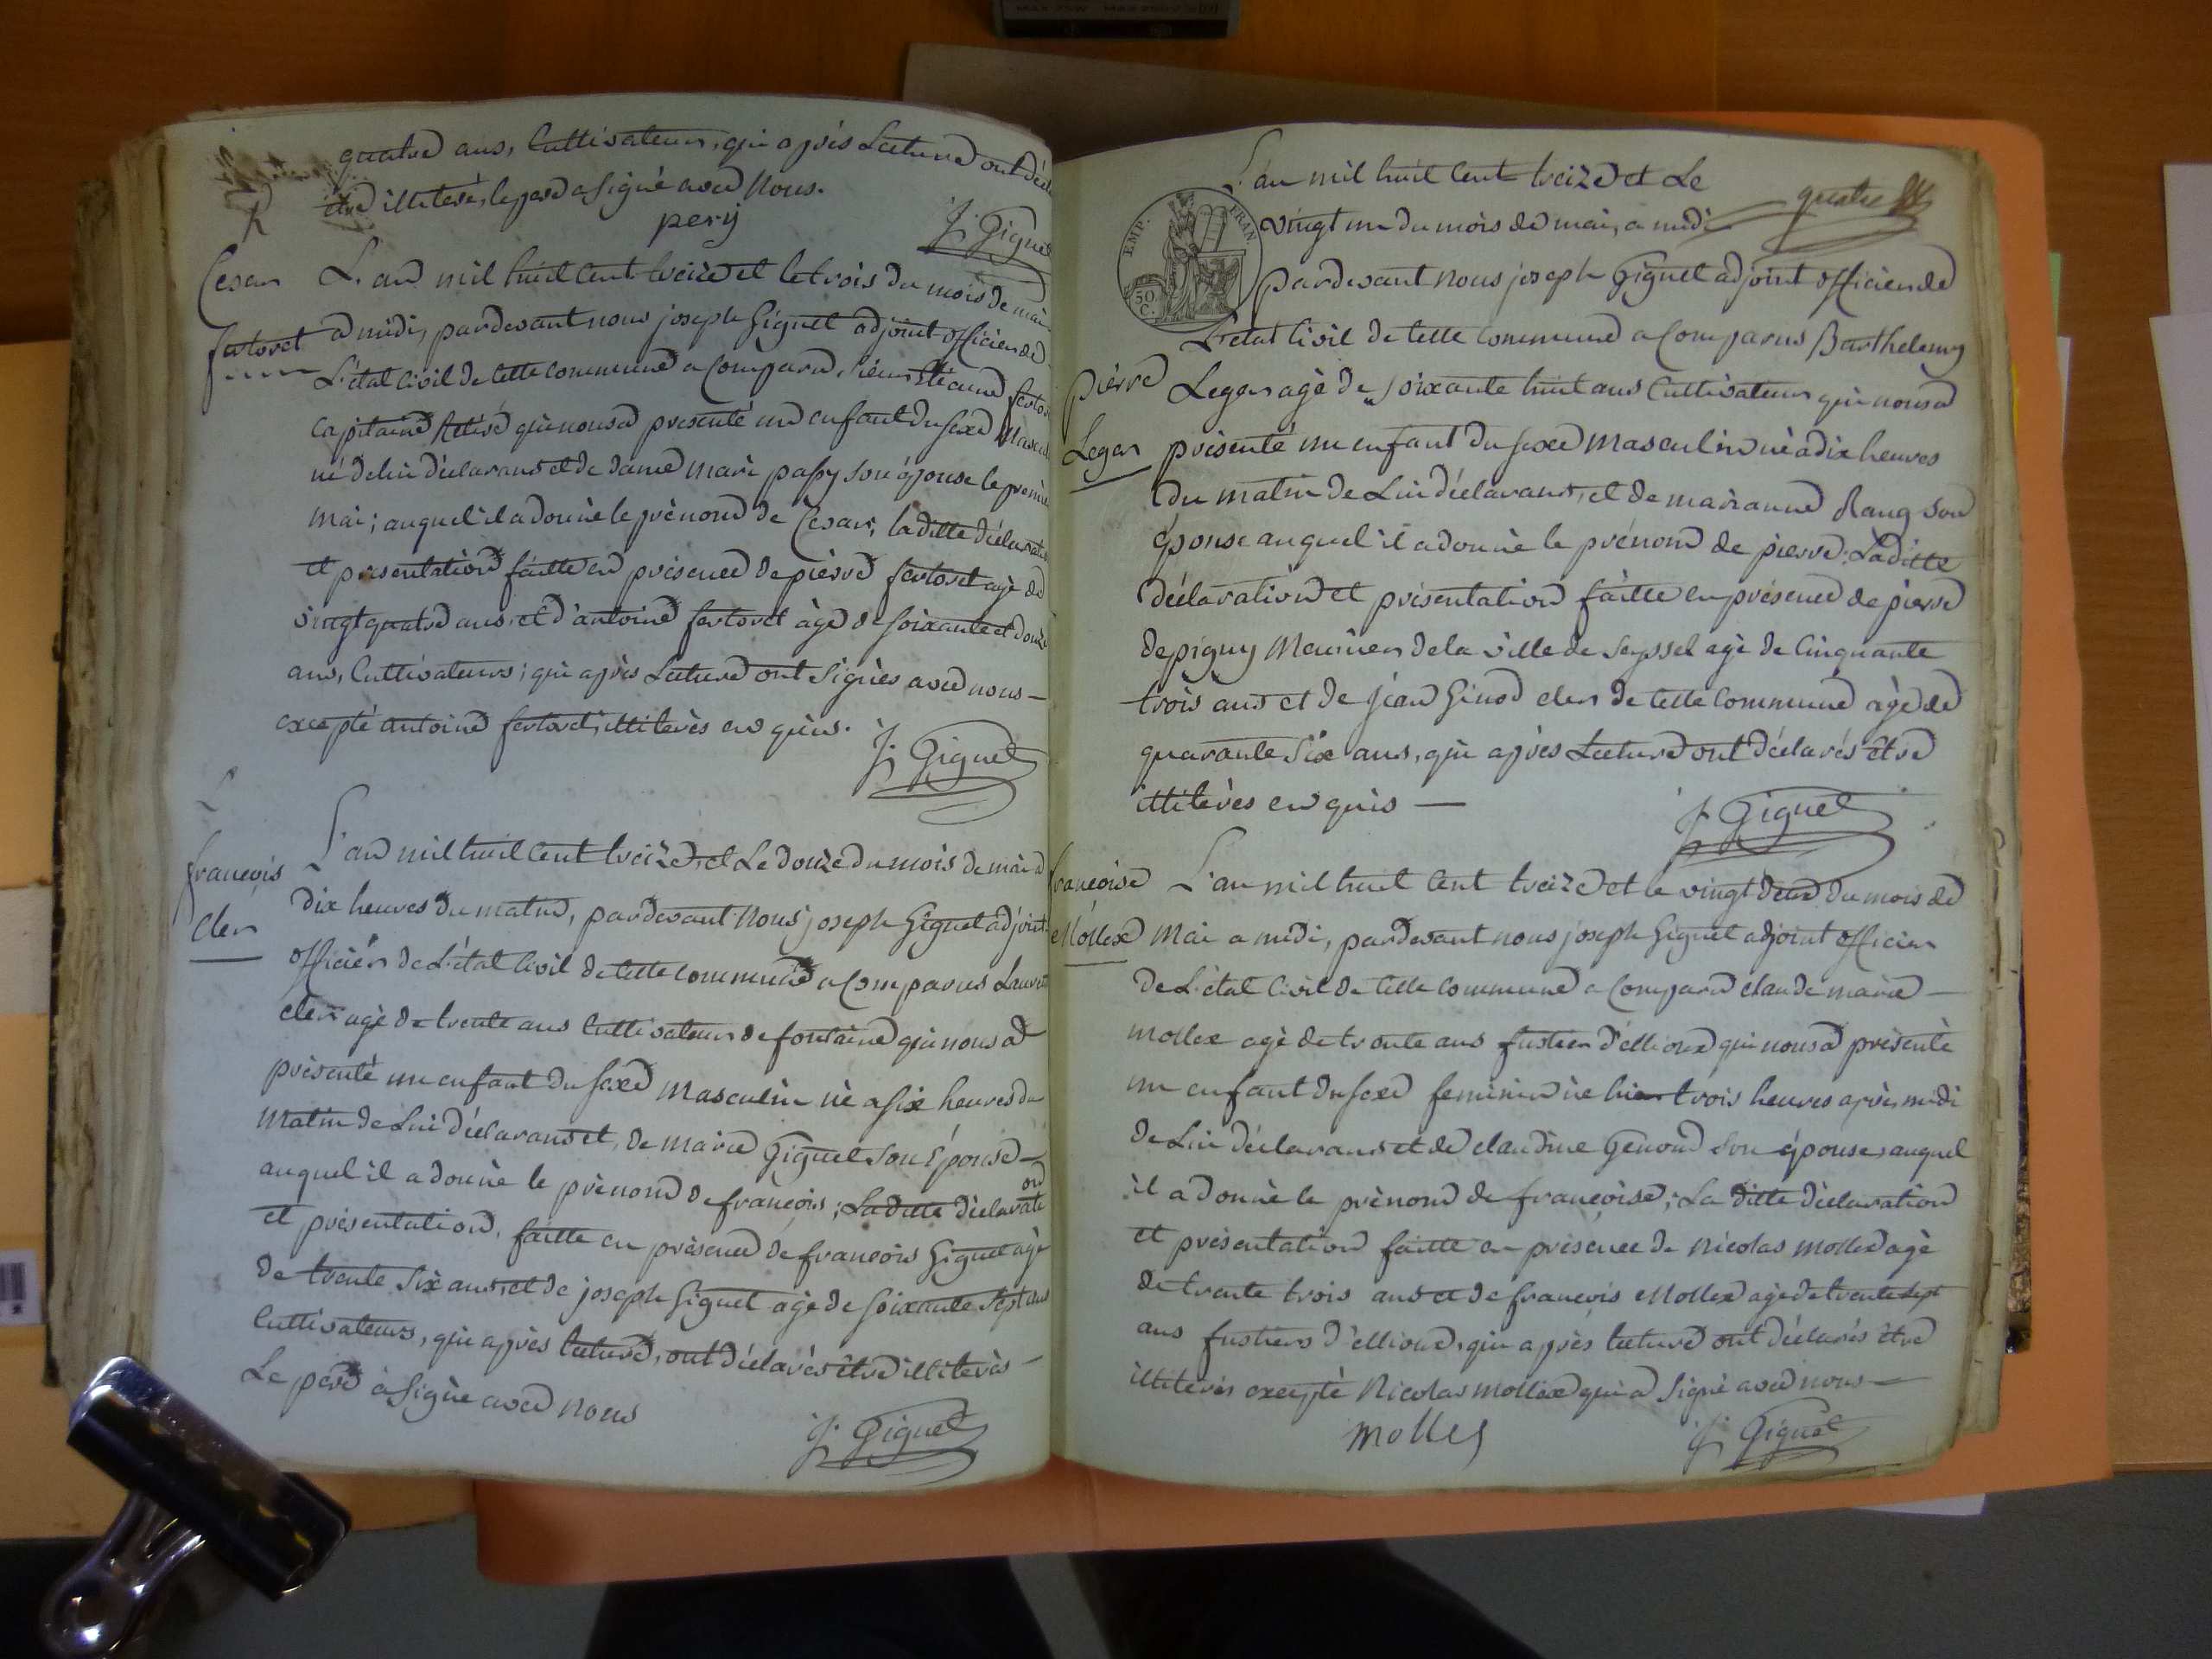 quatre ans, Cultivateur, qui après Lecture ont décl
être illiterés, le pere a signé avec Nous.
pery
J. Giguet
Cesar
fertoret
L'an mil huit Cent treize et le trois du mois de mai
a midi, pardevant nous joseph Giguet adjoint officier de
L'état Civil de cette commune a Comparu, sieur Etienne fertor
Capitaine Retiré qui nous a presenté un enfant du sexe Mascul
né de lui déclarant et de dame marie passy son épouse le premier
Mai; auquel il a donné le prénom de Cesar; la ditte déclaration
et presentation faitte en présence de pierre fertoret agé de
vingt quatre ans, et d'antoine fertoret âgé de soixante et douze
ans, Cultivateurs; qui après Lecture ont signés avec nous —
excepté antoine fertoret, illiterés en quis.
J. Giguet
françois
Cler
L'an mil huit Cent treize, et Le douze du mois de mai a
dix heures du matin, pardevant Nous joseph Giguet adjoint
officier de L'état Civil de cette commune a Comparus Laurent
cler agé de trente ans Cultivateur de fontaine qui nous a
présenté un enfant du sexe Masculin né a six heures du
Matin de Lui déclarant et, de marie Giguet son Épouse —
auquel il a donné le prénom de françois; La ditte déclarate
on
et présentation, faitte en présence de françois Giguet agé
de trente six ans, et de joseph Giguet agé de soixante Sept ans
Cultivateurs, qui après lecture, ont déclarés être illiterés —
Le pere a signé avec Nous
J. Giguet
L'an mil huit Cent treize et Le
quatre
EMP. FRAN
50 C.
vingt un du mois de mai, a midi
pardevant Nous joseph Giguet adjoint officier de
L'état Civil de cette commune a Comparus Barthelemy
pierre
Leger
Leger agé de soixante huit ans Cultivateur qui nous a
présenté un enfant du sexe Masculin né a dix heures
du matin de Lui déclarant, et de marianne Rang son
épouse auquel il a donné le prénom de pierre. La ditte
déclaration et présentation faitte en présence de pierre
depigny Meunier de la ville de Seyssel agé de Cinquante
trois ans et de Jean Ginod cler de cette commune agé de
quarante six ans, qui après Lecture ont déclarés être
illiterés en quis —
J. Giguet
françoise
Mollex
L'an mil huit Cent treize et le vingt deux du mois de
Mai a midi, pardevant nous joseph Giguet adjoint officier
de L'état Civil de cette commune a Comparu claude marie —
mollex agé de trente ans fustier d'ellioux qui nous a présenté
un enfant du sexe feminin né hier trois heures après midi
de Lui déclarant et de claudine Genoud son épouse, auquel
il a donné le prénom de françoise; La ditte déclaration
et présentation faitte en présence de Nicolas mollex agé
de trente trois ans et de françois Mollex agé de trente sept
ans fustiers d'ellioux, qui après lecture ont déclarés être
illiterés excepté Nicolas mollex qui a signé avec nous —
Molles
J. Giguet